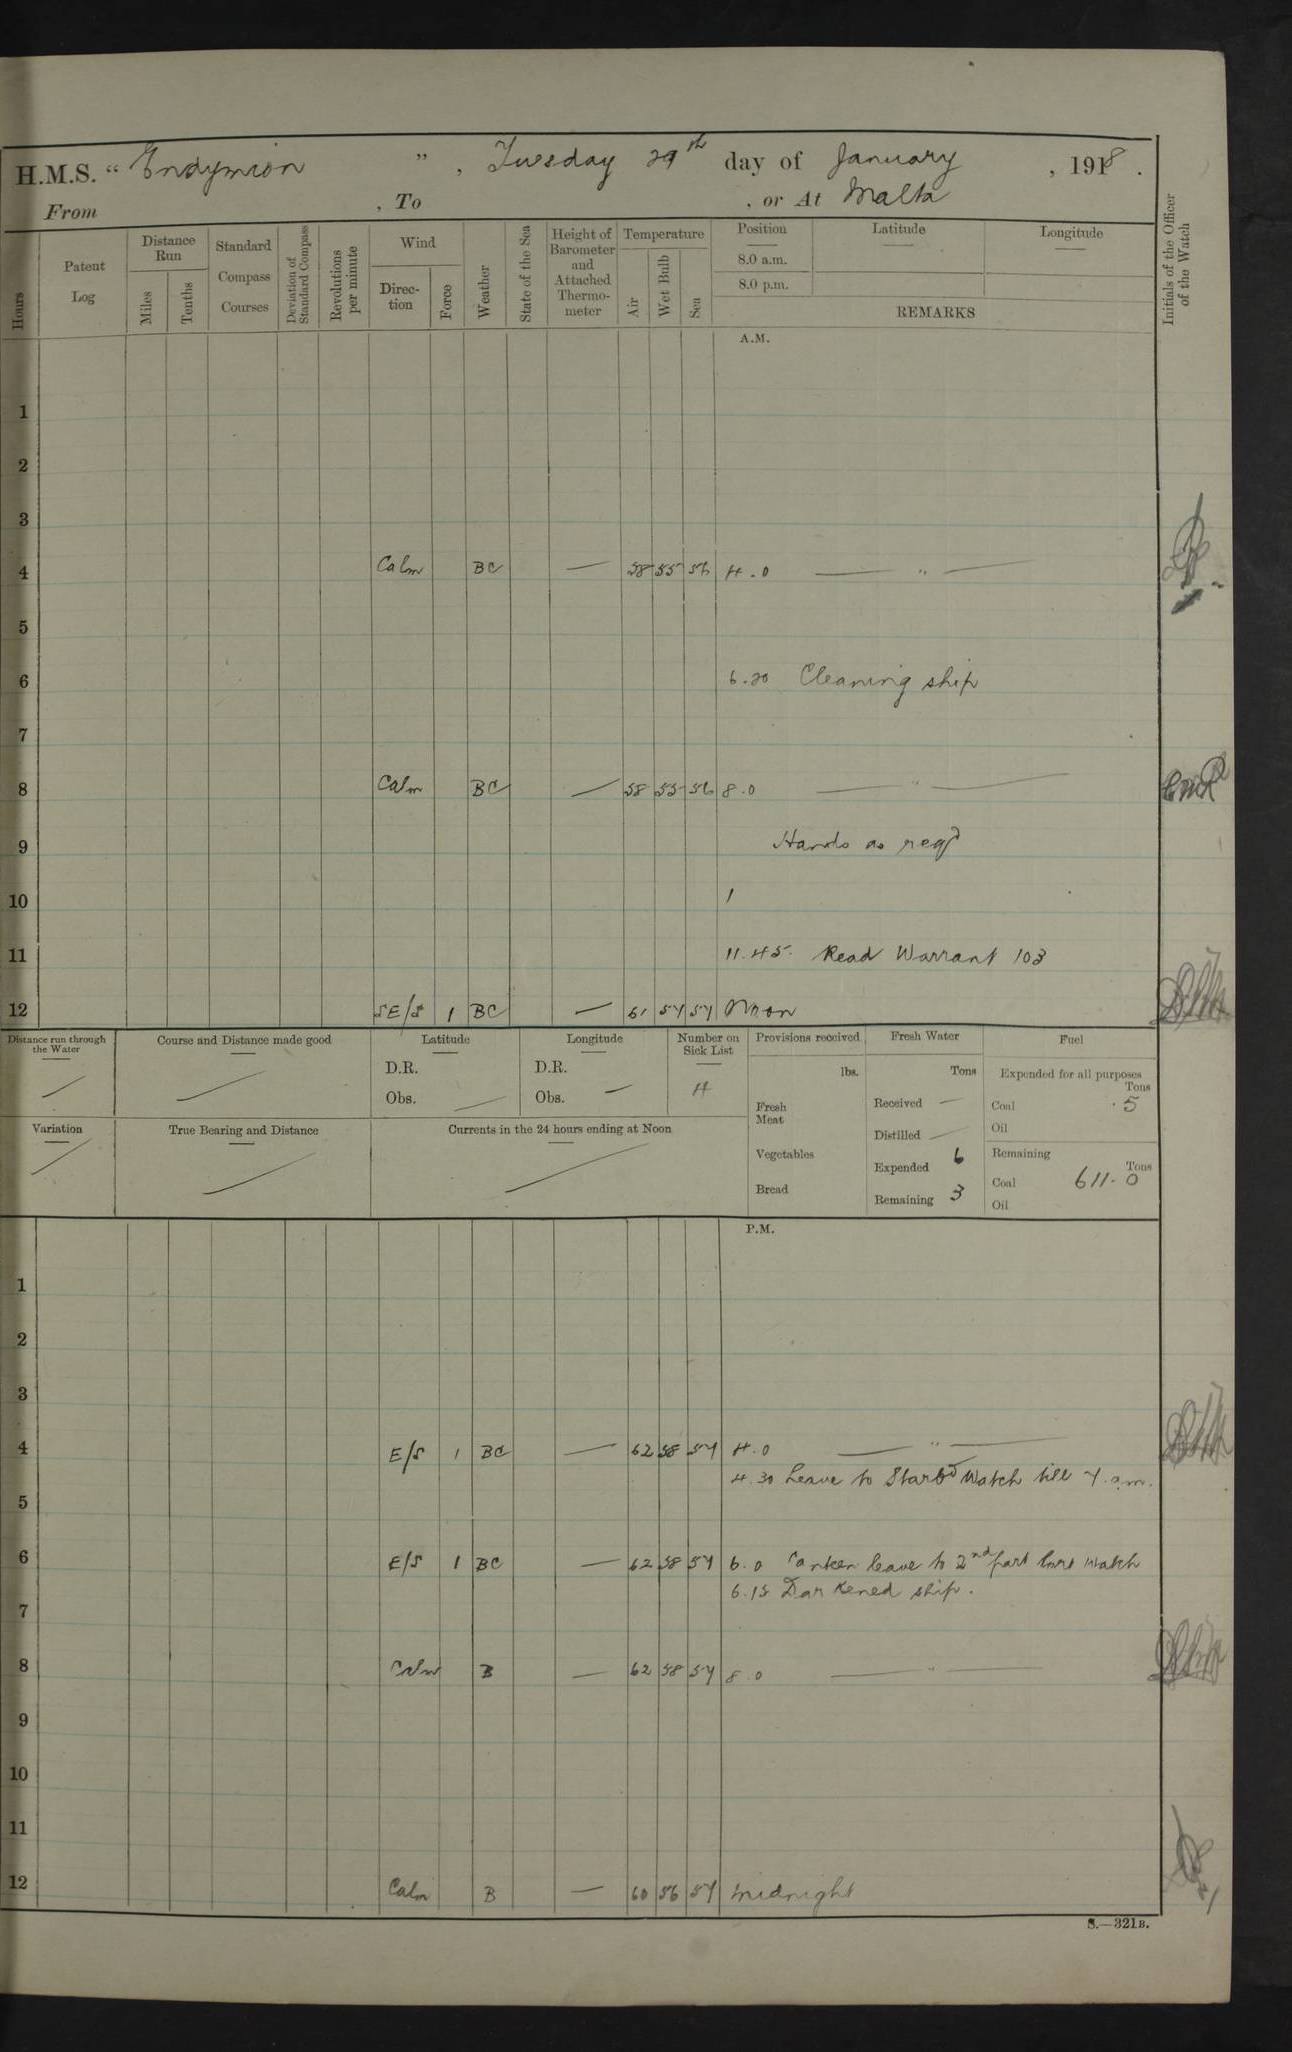 H.M.S. "Endymion", Tuesday 29th day of January, 1918.
From , To , or At Malta
Hours
Patent Log
Distance Run
Miles
Tenths
Standard Compass Courses
Deviation of Standard Compass
Revolutions per minute
Wind
Direction
Force
Weather
State of the Sea
Height of Barometer and Attached Thermometer
Temperature
Air
Wet Bulb
Sea
Position
8.0 a.m.
8.0 p.m.
Latitude
Longitude
REMARKS
Initials of the Officer of the Watch
A.M.
1
2
3
4 Calm BC — 58 55 56 4.0 — " —
5
6 6.20 Cleaning ship
7
8 Calm BC — 58 55 56 8.0 — " —
9 Hands as reqd
10
11 11.45. Read Warrant 103
12 SE/S 1 BC — 61 57 57 Noon
Distance run through the Water
Course and Distance made good
Latitude
D.R.
Obs. —
Longitude
D.R.
Obs. —
Number on Sick List
4
Provisions received
lbs.
Fresh Meat
Vegetables
Bread
Fresh Water
Tons
Received —
Distilled —
Expended 6
Remaining 3
Fuel
Expended for all purposes
Tons
Coal .5
Oil
Remaining
Tons
Coal 611.0
Oil
Variation
True Bearing and Distance
Currents in the 24 hours ending at Noon
P.M.
1
2
3
4 E/S 1 BC — 62 58 57 4.0 — " —
4.30 Leave to Starbd Watch till 7 a.m.
5
6 E/S 1 BC — 62 58 57 6.0 Canteen leave to 2nd part Watch
6.15 Darkened ship.
7
8 Calm B — 62 58 57 8.0 — " —
9
10
11
12 Calm B — 60 56 57 Midnight
S.—321B.